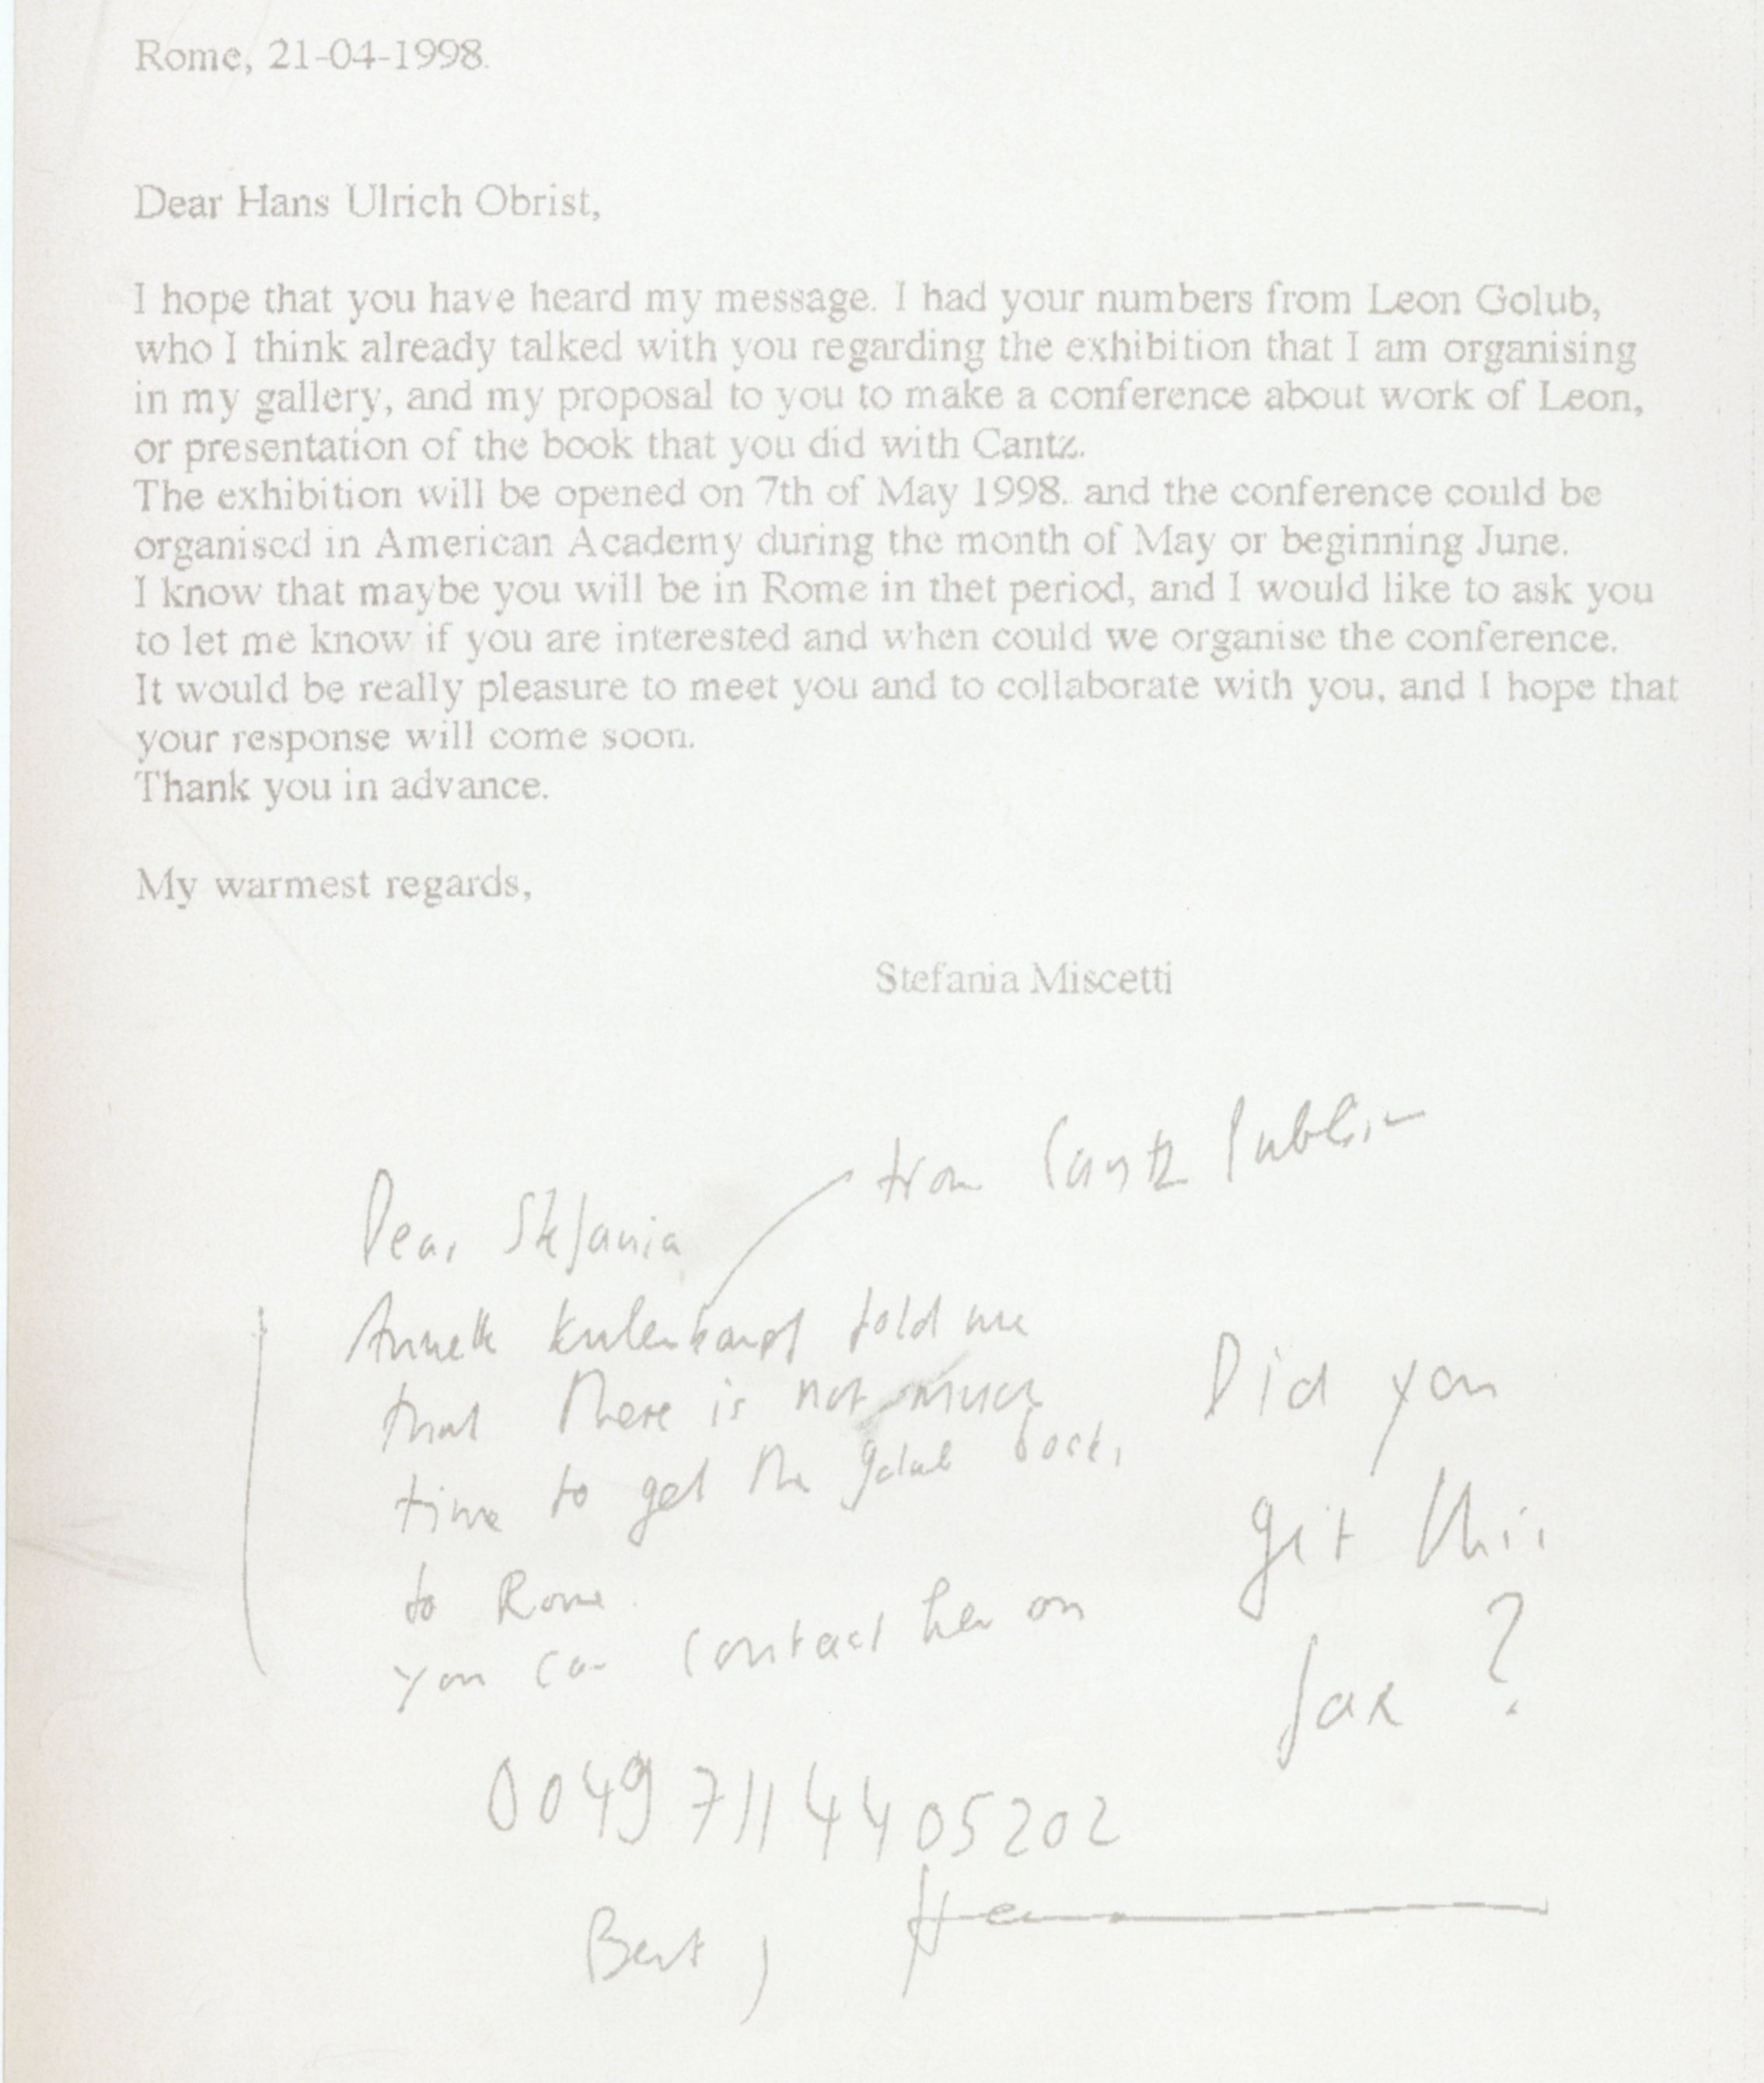 Rome, 21-04-1998.
Dear Hans Ulrich Obrist,
I hope that you have heard my message. I had your numbers from Leon Golub,
who I think already talked with you regarding the exhibition that I am organising
in my gallery, and my proposal to you to make a conference about work of Leon,
or presentation of the book that you did with Cantz.
The exhibition will be opened on 7th of May 1998. and the conference could be
organised in American Academy during the month of May or beginning June.
I know that maybe you will be in Rome in thet period, and I would like to ask you
to let me know if you are interested and when could we organise the conference.
It would be really pleasure to meet you and to collaborate with you, and I hope that
your response will come soon.
Thank you in advance.
My warmest regards,
Stefania Miscetti
from Cantz
Dear Stefania
Annette told me
that there is not much
time to get the golub book,
to Rome.
you can contact her on
00497114405202
Best,
Did you
get this
fax ?